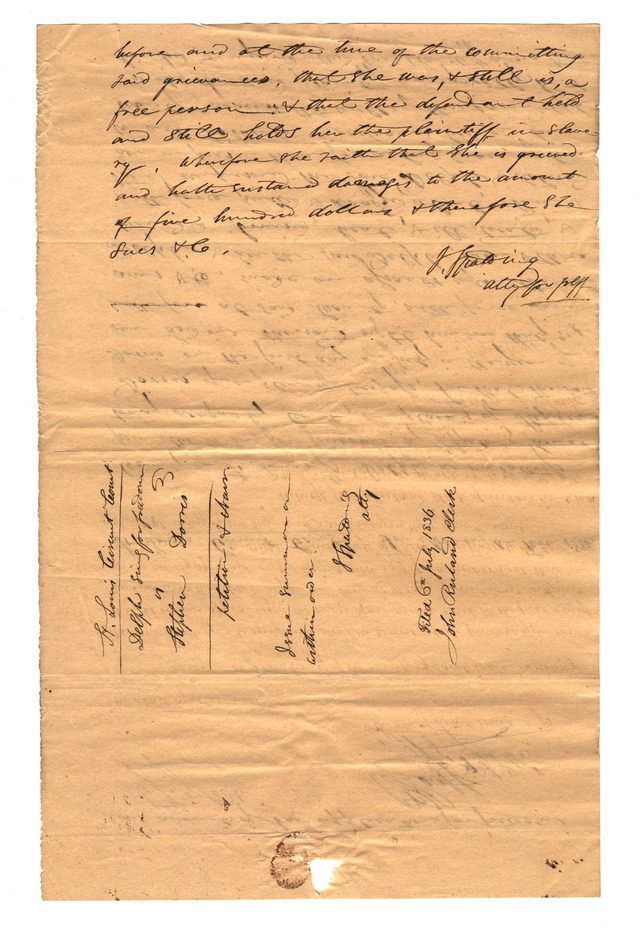 before and at the time of the committing
said grievances, that She was, & still is, a
free person, & that the defendant held
and still holds her the plaintiff in slave
ry. Wherefore she saith that She is grieved
and hath sustaind damages to the amount
of five hundred dollars, & therefore She
Sues &C.
J Spalding
atty for plff
St. Louis Circuit Court
Delph suing for freedom
vs
Stephen Dorris
petition &
Issue Summons on
within order
J Spalding
atty
Filed 6th July 1836
John Ruland Clerk